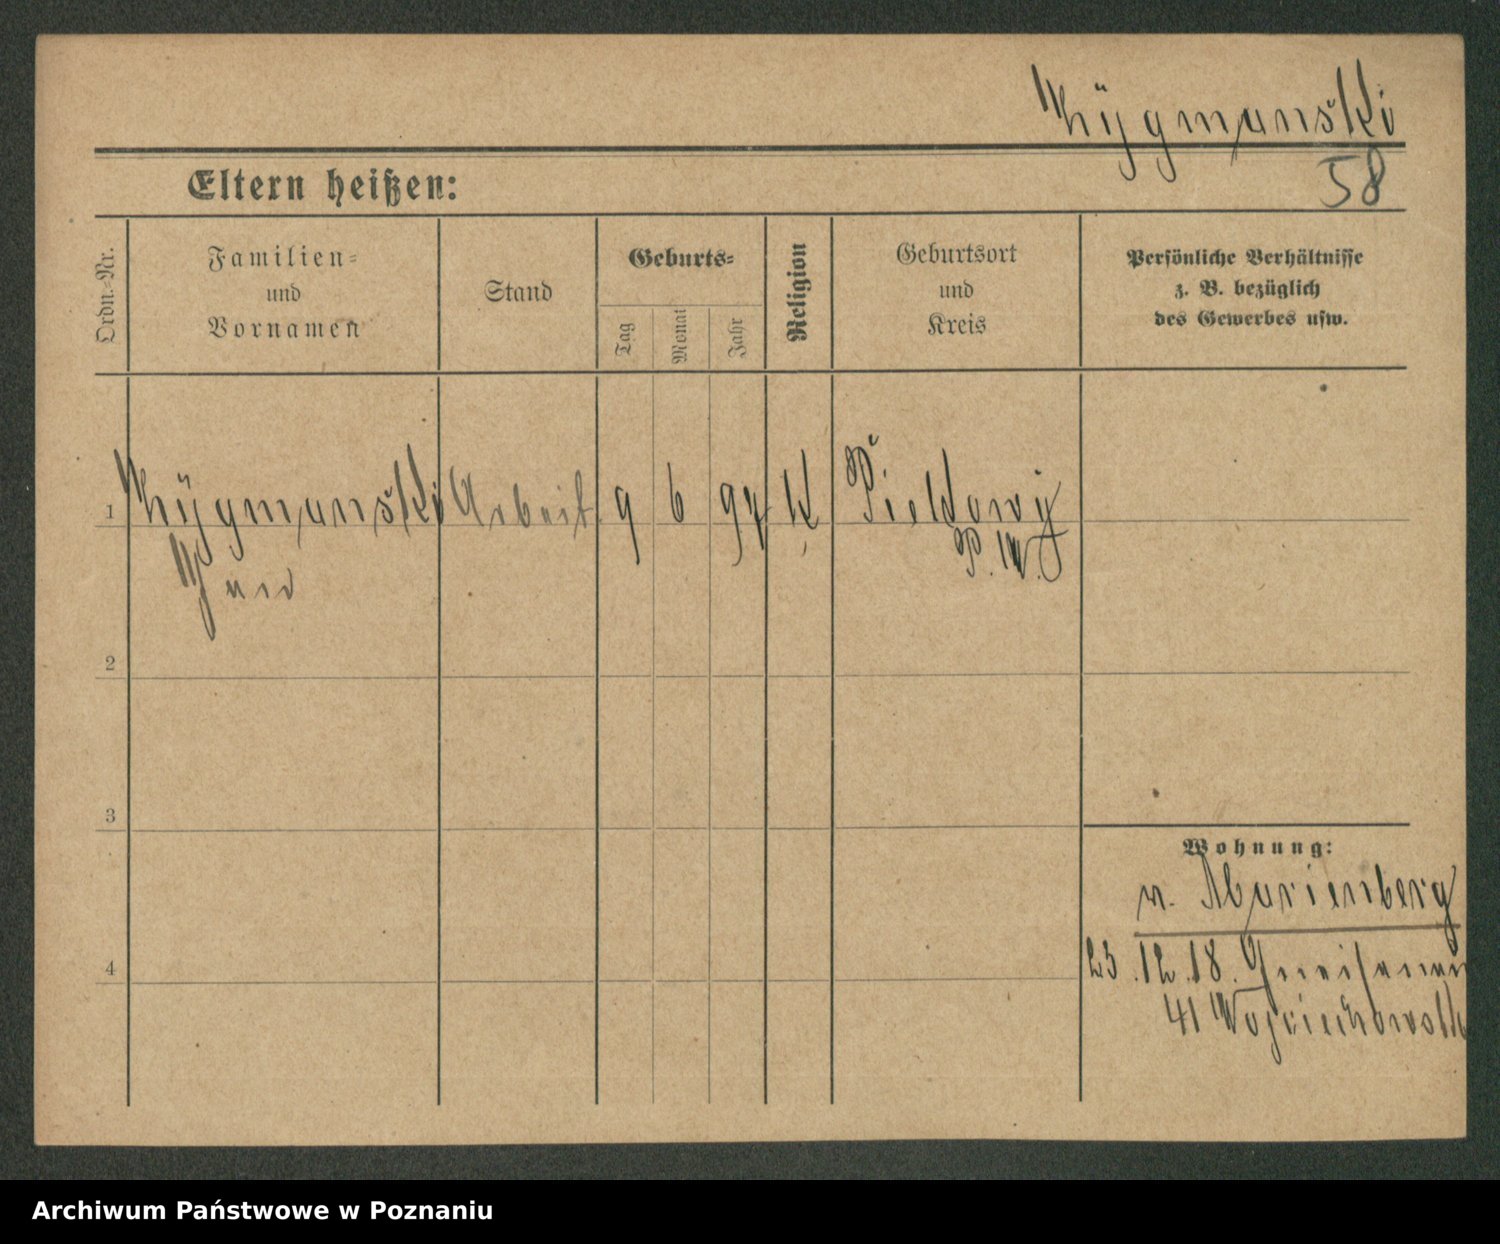 Zÿgmanski
58
Eltern heißen:
Ordn.-Nr.
Familien-
und
Vornamen
Stand
Geburts-
Tag
Monat
Jahr
Religion
Geburtsort
und
Kreis
Persönliche Verhältnisse
z. B. bezüglich
des Gewerbes usw.
1
Zÿgmanski Arbeit. 9 6 97 K
2
3
4
Wohnung:
v. Marienberg
23.12.18. Gneisenau
41 Wojciechowsk
Archiwum Państwowe w Poznaniu